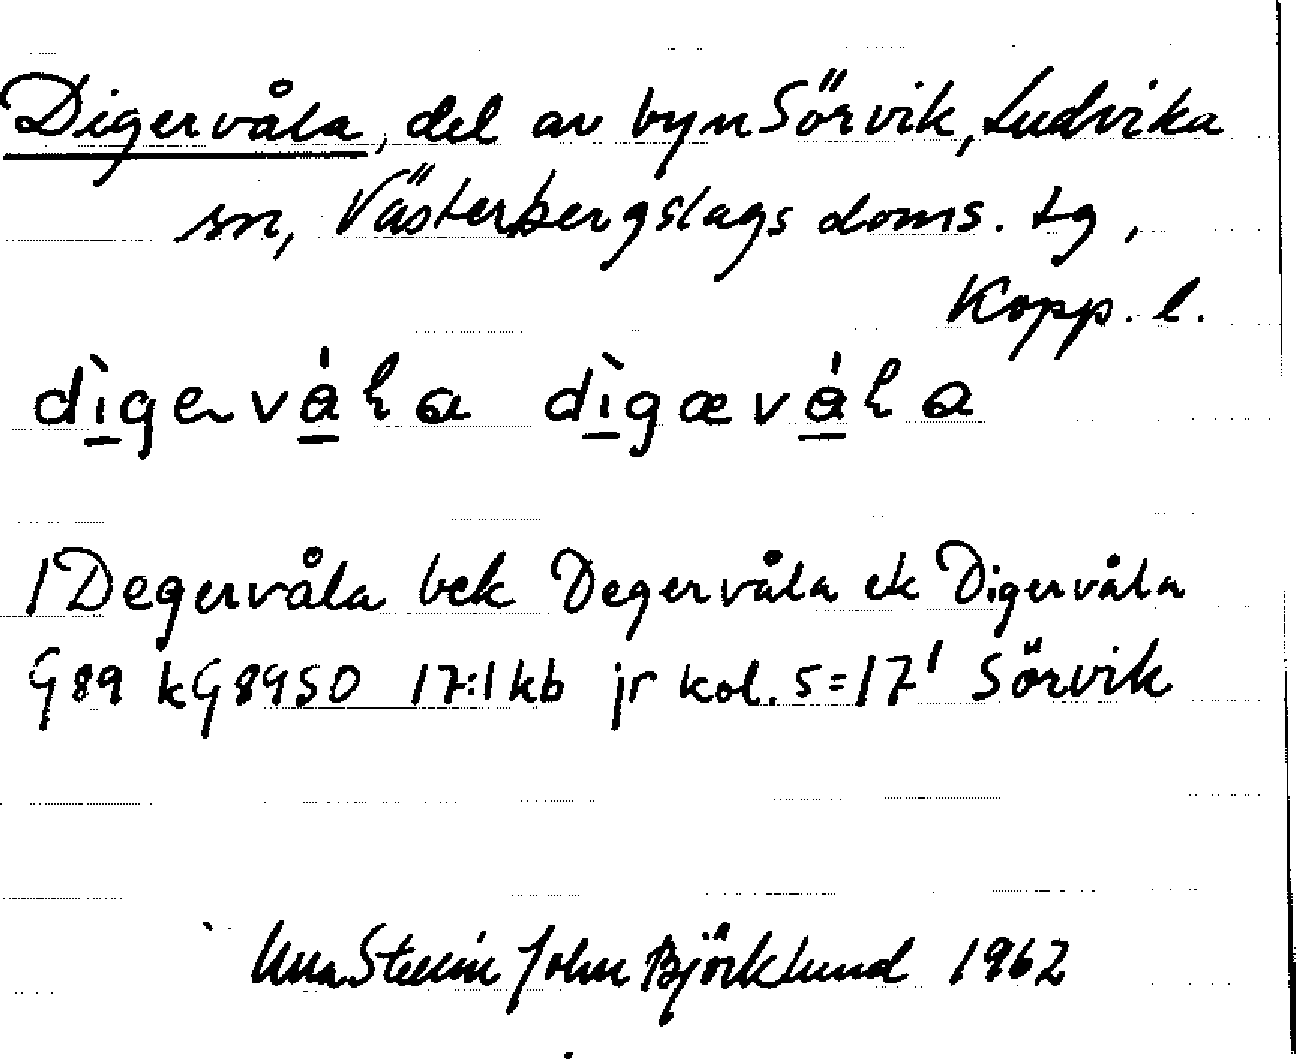 Digervåla, del av byn Sörvik, Ludvika
sn, Västerbergslags doms. tg,
Kopp. l.
dìgervála dìgæválа
/Degervåla bek Degervåla ek Digervåla
G89 kG8950 17:1 kb jr kol. 5=17' Sörvik
John Björklund 1962